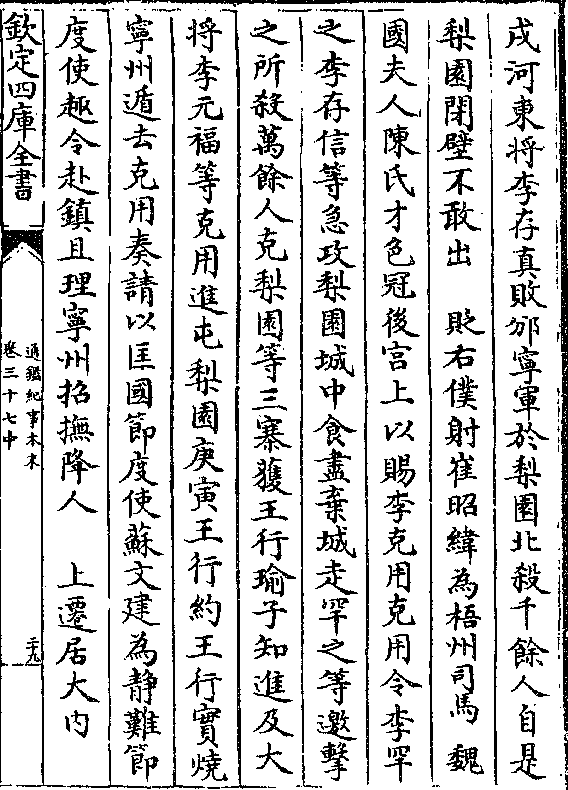 戌河東將李存真敗邠寧軍於梨園北殺千餘人自是
梨園閉壁不敢出　貶右僕射崔昭緯為梧州司馬　魏
國夫人陳氏才色冠後宮上以賜李克用克用令李罕
之李存信等急攻梨園城中食盡棄城走罕之等邀擊
之所殺萬餘人克梨園等三寨獲王行瑜子知進及大
將李元福等克用進屯梨園庚寅王行約王行實燒
寧州遁去克用奏請以匡國節度使蘇文建為静難節
度使趣令赴鎮且理寧州招撫降人　上遷居大内
欽定四庫全書
通鑑紀事本末
卷三十七中
二十九